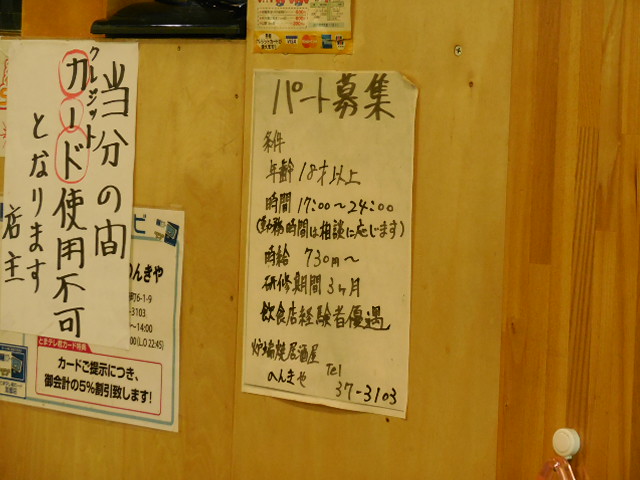 クレジット
当分の間
カード使用不可
となります
店主
パート募集
条件
年齢 18才以上
時間 17:00〜24:00
(勤務時間は相談に応じます)
時給 730円〜
研修期間 3ヶ月
飲食店経験者優遇
炉端焼居酒屋
のんきや Tel
37-3103
ビ
のんきや
町6-1-9
-3103
〜14:00
00(L.O 22:45)
とまチレ君カード特典
カードご提示につき、
御会計の5%割引致します!
VISA